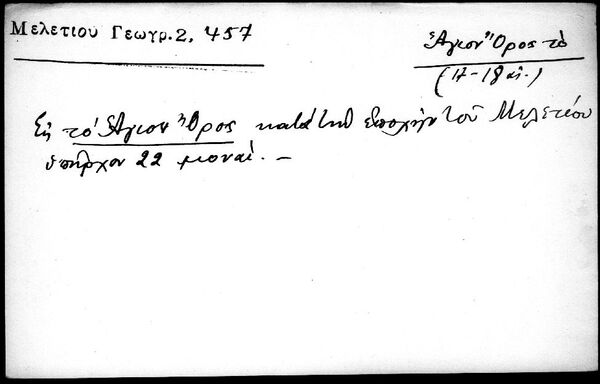 Μελετίου Γεωγρ.2, 457
Ἅγιον Ὄρος τὸ
(17-18 αἰ.)
Εἰς τὸ Ἅγιον Ὄρος κατὰ τὴν ἐποχὴν τοῦ Μελετίου
ὑπῆρχον 22 μοναί. —